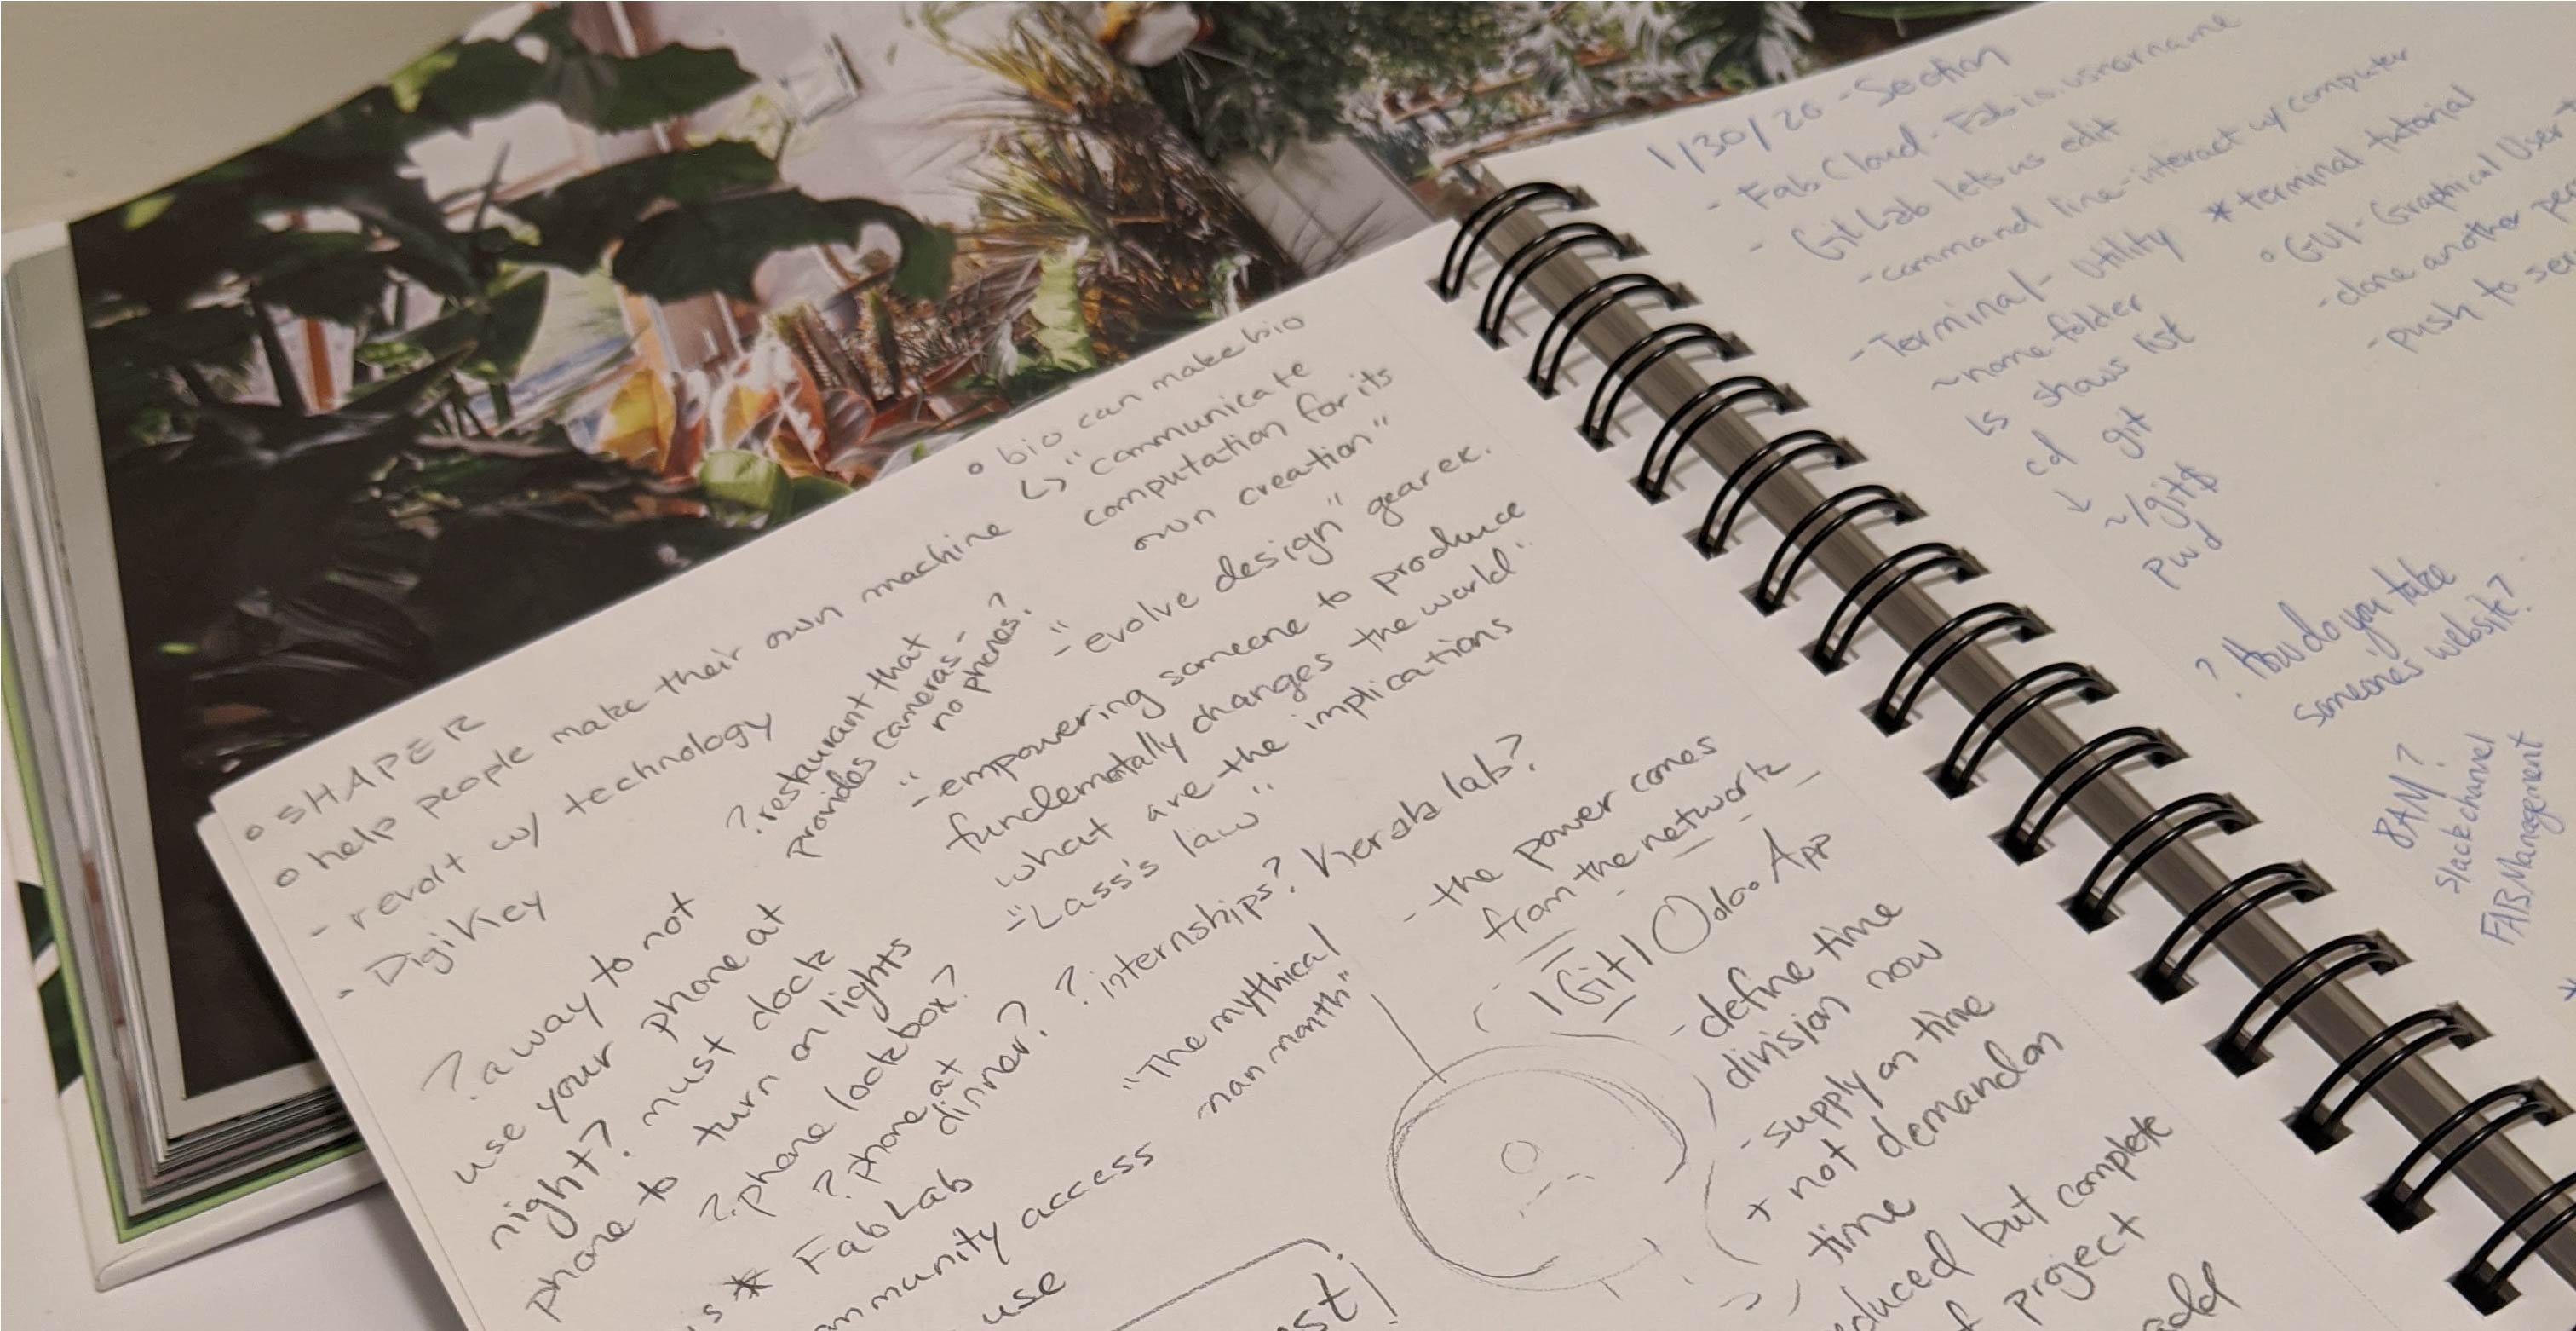 • SHAPER
• help people make their own machine
- revolt w/ technology
- DigiKey
• bio can make bio
↳ "communicate
computation for its
own creation"
"
- evolve design" gear ex.
? restaurant that
provides cameras -
no phones?
"
- empowering someone to produce
fundemetally changes the world"
what are the implications
="Lass's law"
? a way to not
use your phone at
night? must dock
phone to turn on lights
? phone lockbox?
? phone at
dinner?
? internships?
lab?
- the power comes
from the network
| Git | Odoo App
"The mythical
man month"
- define time
division now
- supply on time
+ not demand on
time
but complete
project
add
* FabLab
mmunity access
use
st!
1/30/20 - Section
- Fab Cloud - Fab is username
- GitLab lets us edit
- command line - interact w/ computer
- Terminal - Utility * terminal tutorial
~ name folder
ls shows list
cd git
↓ ~/git$
pwd
• GUI - Graphical User
- clone another
- push to
? How do you take
someones website?
8AM?
Slack channel
FAB Management
*